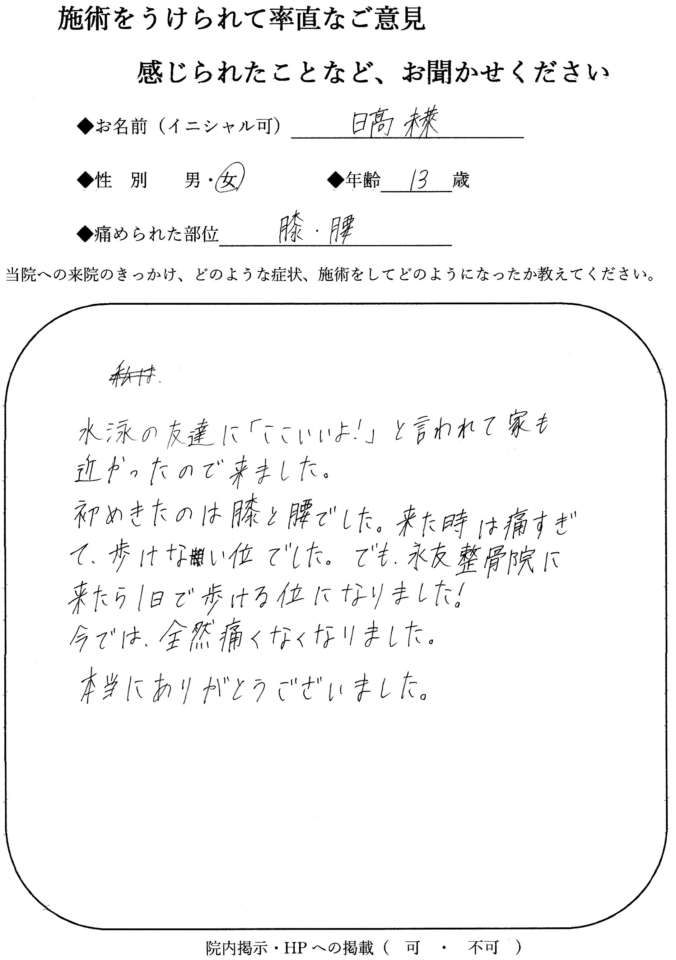 施術をうけられて率直なご意見
感じられたことなど、お聞かせください
◆お名前（イニシャル可） 日高
◆性 別 男・女 ◆年齢 13 歳
◆痛められた部位 膝・腰
当院への来院のきっかけ、どのような症状、施術をしてどのようになったか教えてください。
私は、
水泳の友達に「ここいいよ！」と言われて家も
近かったので来ました。
初めきたのは膝と腰でした。来た時は痛すぎ
て、歩けない位でした。でも、永友整骨院に
来たら1日で歩ける位になりました！
今では、全然痛くなくなりました。
本当にありがとうございました。
院内掲示・HPへの掲載（ 可 ・ 不可 ）